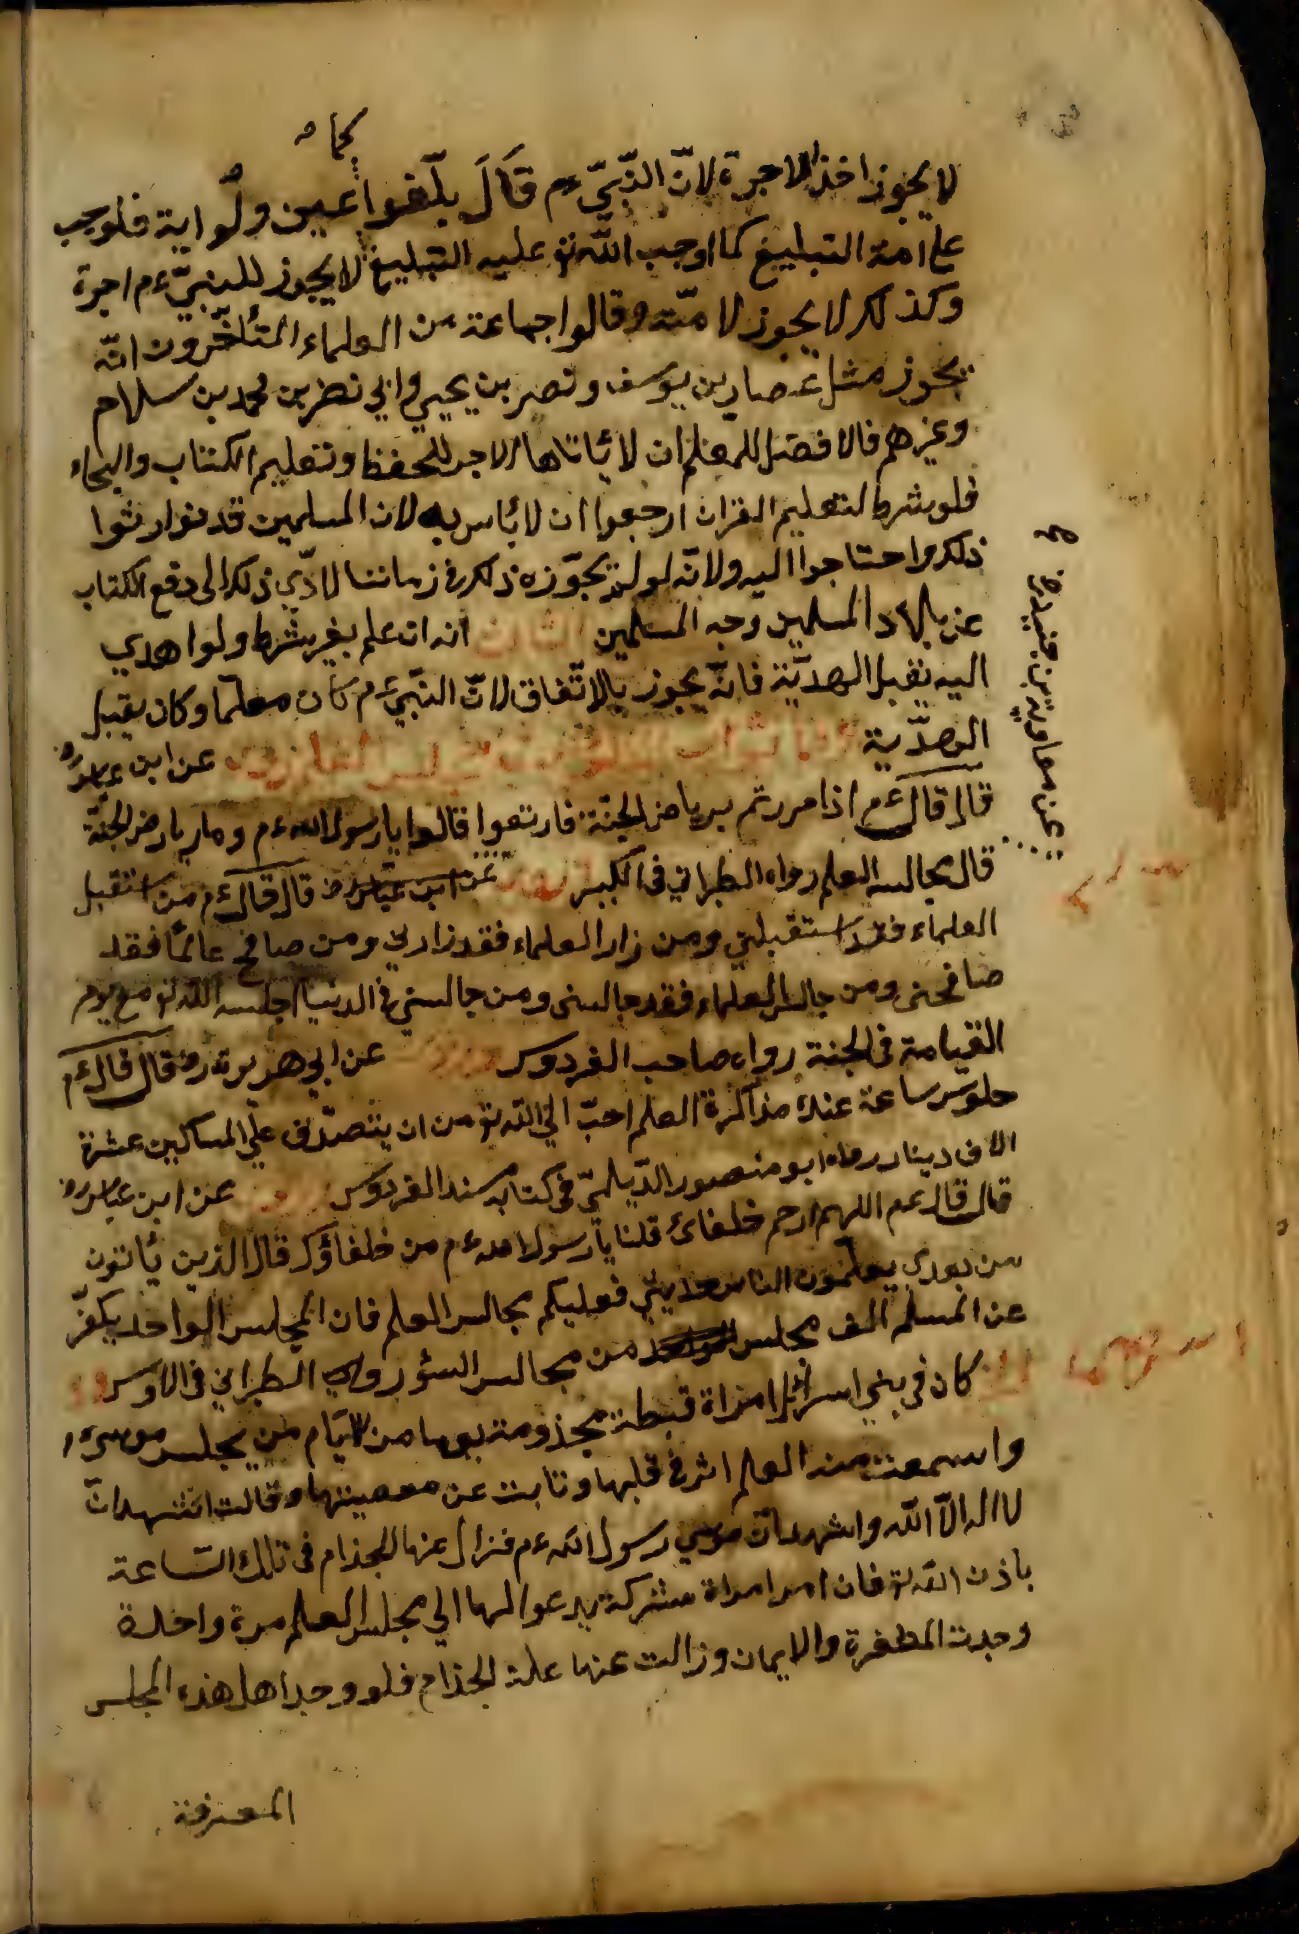 لا يجوز اخذ الاجرة لانّ النّبيّ ءم قَالَ بلّغوا عني ولو اية فلوجب
على امته التبليغ كما اوجب الله تع عليه التبليغ لا يجوز للنبيّ ءم اجرة
وكذلك لا يجوز لامّته وقالوا جماعة من العلماء المتأخّرون انّه
يجوز مثل عصار بن يوسف ونصر بن يحيي وابي نضر بن محمد بن سلام
وغيرهم فالافضل للمعلم ان لا الاجر للحفظ وتعليم الكتاب والهجاء
فلو شرط لتعليم القران ارجعوا ان لا بأس به لان المسلمين قد توارثوا
ذلك واحتاجوا اليه ولانّه لو لم يجوّزه ذلك في زماننا لادّي ذلك الى دفع الكتاب
عن بلاد المسلمين وجه المسلمين الثالث انه ان علم بغير شرط ولو اهدي
اليه يقبل الهديّة فانّه يجوز بالاتّفاق لانّ النّبيّ ءم كان معلّما وكان يقبل
الهدّية عن ابن عباس رض
قال قال ءم اذا مررتم برياض الجنّة فارتعوا قالوا يا رسول الله ءم وما رياض الجنّة
قال مجالس العلم رواه الطبراني في الكبير عن ابن عباس رض قال قال ءم من استقبل
العلماء فقد استقبلني ومن زار العلماء فقد زارني ومن صافح عالمًا فقد
صافحني ومن جالس العلماء فقد جالسني ومن جالسني في الدنيا اجلسه الله تع مع يوم
القيامة في الجنة رواه صاحب الفردوس عن ابي هريرة رض قال قال ءم
جلوس ساعة عند مذاكرة العلم احبّ الي الله تع من ان يتصدّق علي المساكين عشرة
الاف دينار رواه ابو منصور الدّيلميّ في كتابه مسند الفردوس عن ابن عباس رض
قال قال عم اللهم ارحم خلفائ قلنا يا رسول الله ءم من خلفاؤك قال الذين يأتون
من بعدي يعلّمون الناس حديثي فعليكم مجالس العلم فان المجلس الواحد يكفّر
عن المسلم الف مجلس من مجالس السّور رواه الطبراني في الاوس
كان في بني اسرائل امراة قبطة مجذومة يوما من الايّام من مجلس موسي ءم
واسمعت من العلم اثر في قلبها وتابت عن معصيتها وقالت اشهد انّ
لا اله الاّ الله واشهد انّ موسي رسول الله ءم فزال عنها الجذام في تلك السّاعة
باذن الله تع فان امر امراة مشركة يدعو الها الي مجلس العلم مرة واحدة
وجدت المغفرة والايمان وزالت عنها علة الجذام فلو وجد اهل هذه المجلس
المغفرة
عن معاوية بن حيدة رض